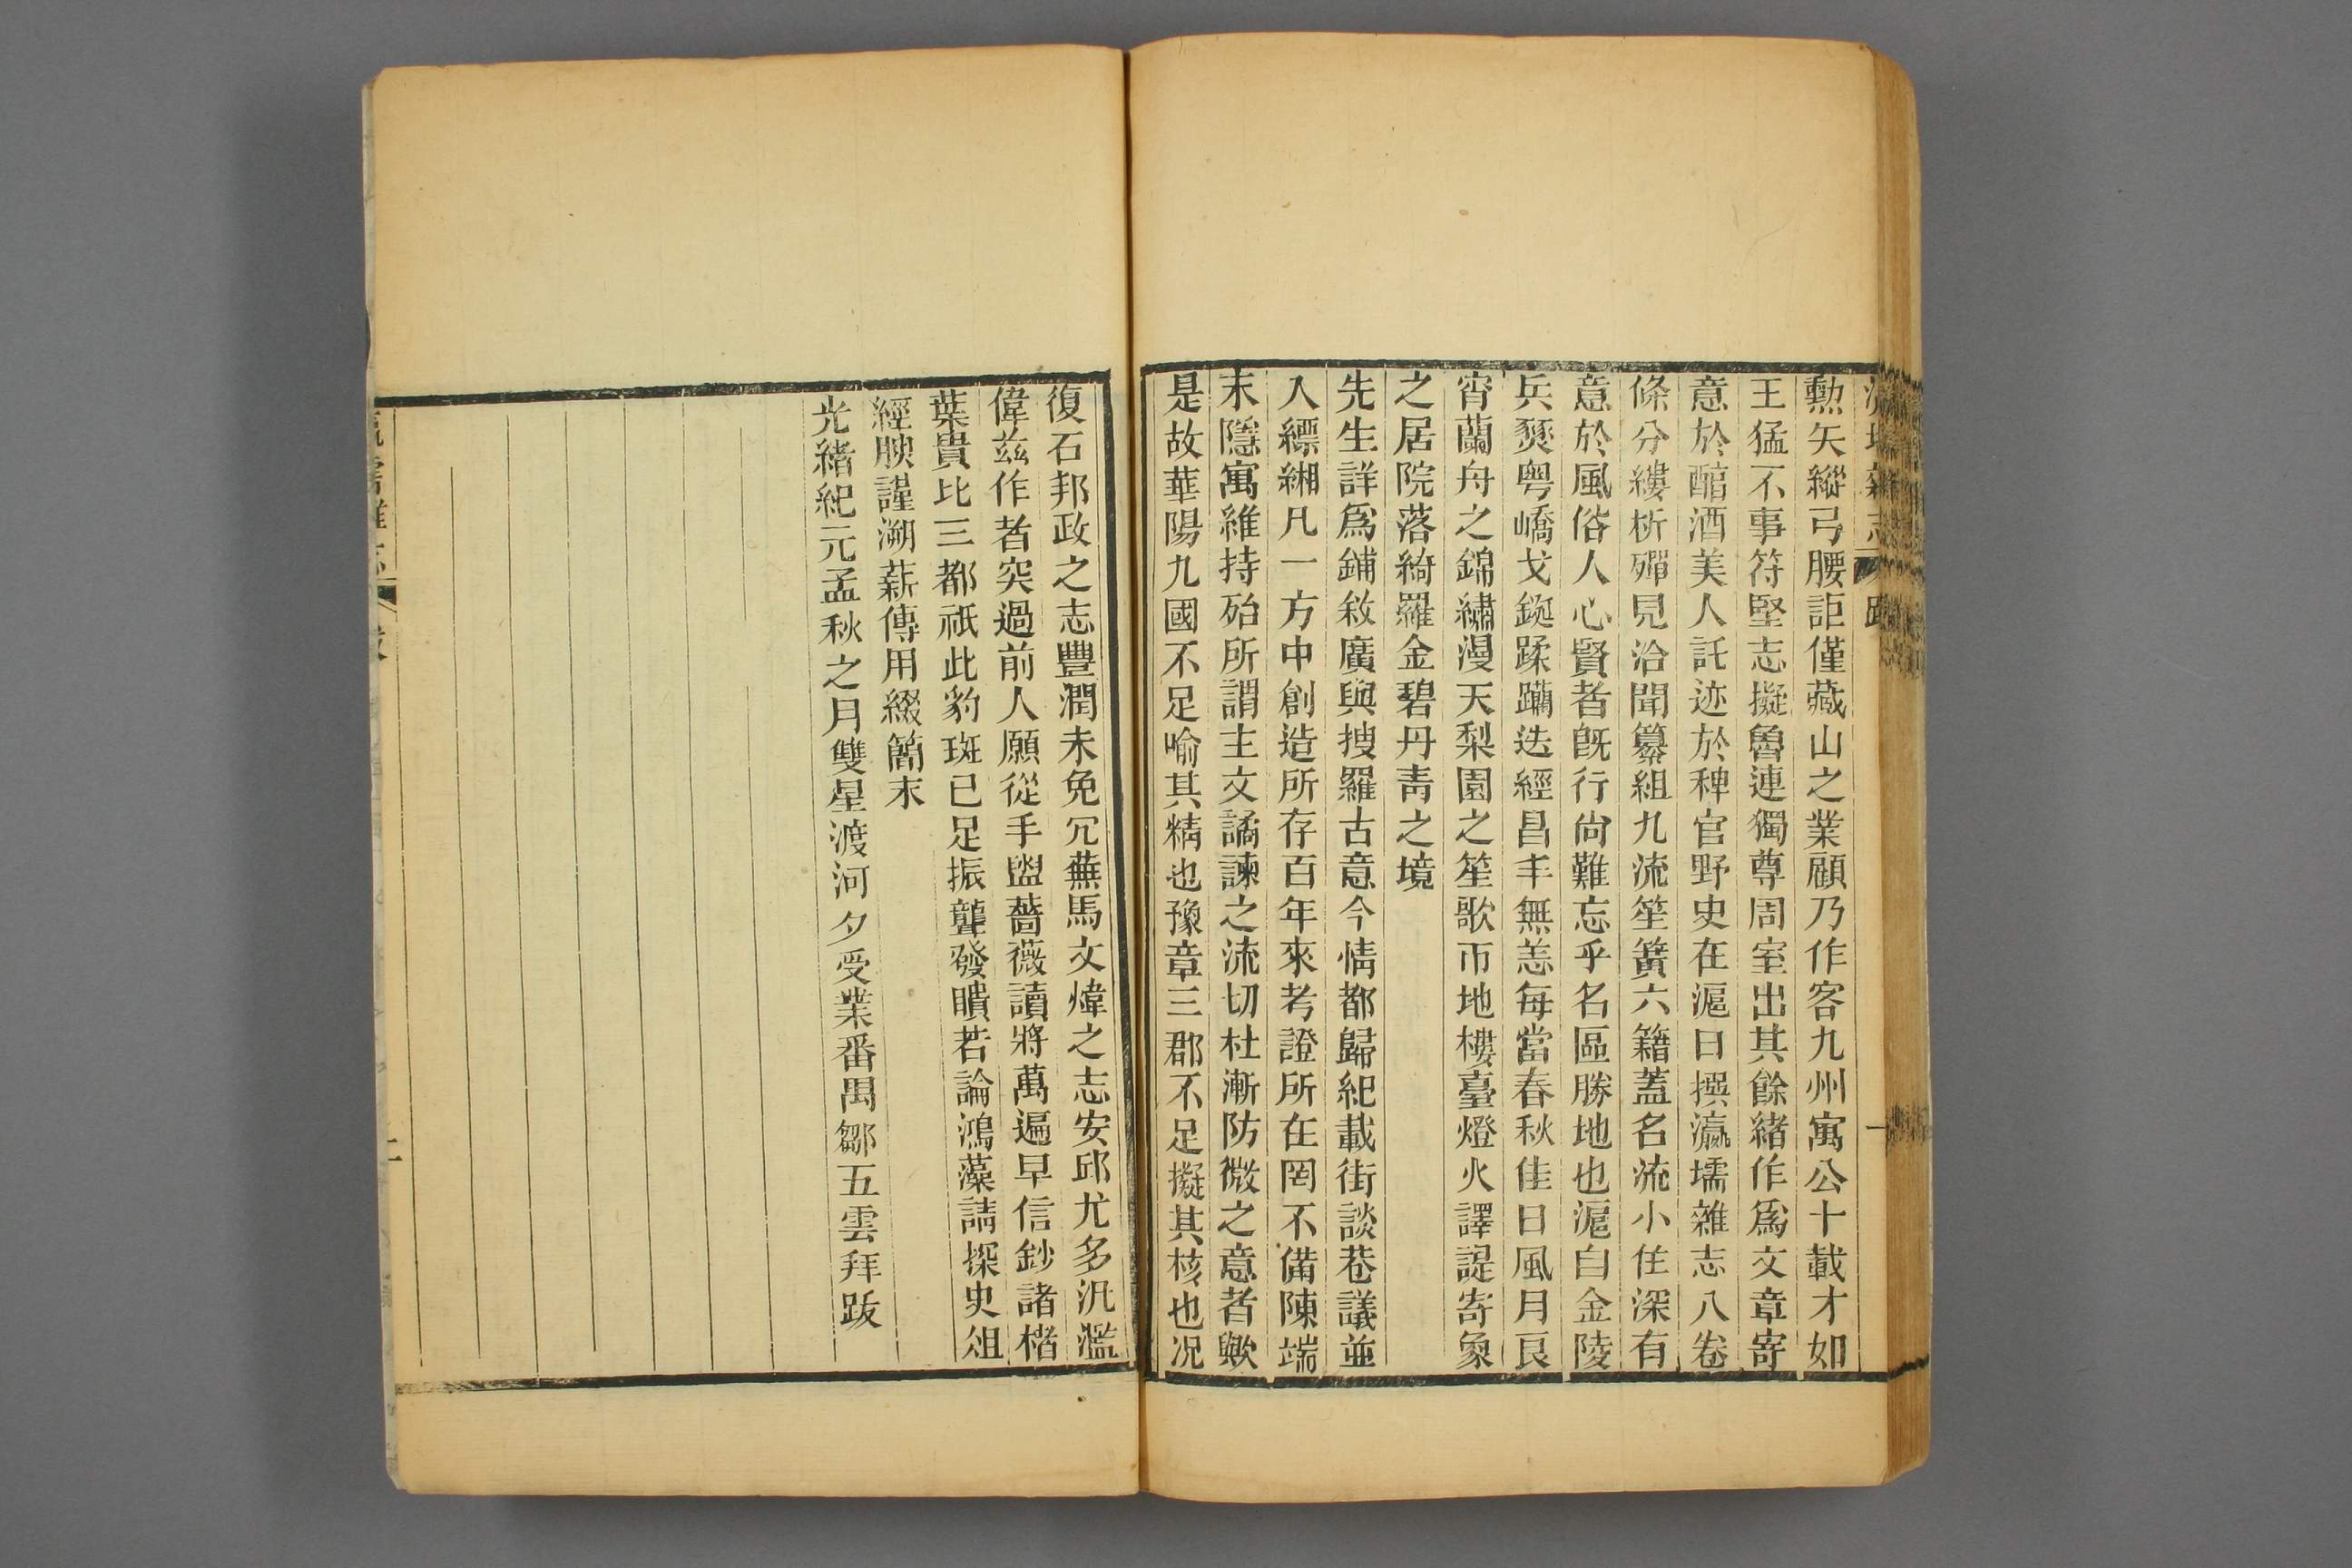 瀛壖雜志 跋 一
勲矢縱弓腰詎僅藏山之業顧乃作客九州寓公十載才如
王猛不事符堅志擬魯連獨尊周室出其餘緒作爲文章寄
意於醇酒美人託迹於稗官野史在滬日撰瀛壖雜志八卷
條分縷析殫見洽聞纂組九流笙簧六籍蓋名流小住深有
意於風俗人心賢者既行尙難忘乎名區勝地也滬自金陵
兵燹粤嶠戈鋋蹂躪迭經昌丰無恙每當春秋佳日風月良
宵蘭舟之錦繡漫天梨園之笙歌帀地樓臺燈火譯諟寄象
之居院落綺羅金碧丹靑之境
先生詳爲鋪敘廣與搜羅古意今情都歸紀載街談巷議並
入縹緗凡一方中創造所存百年來考證所在罔不備陳端
末隱寓維持殆所謂主文譎諫之流切杜漸防微之意者歟
是故華陽九國不足喻其精也豫章三郡不足擬其核也况
復石邦政之志豐潤未免冗蕪馬文煒之志安邱尤多汎濫
偉茲作者突過前人願從手盥薔薇讀將萬遍早信鈔諸楮
葉貴比三都祇此豹斑已足振聾發聵若論鴻藻請探史俎
經腴謹溯薪傳用綴簡末
光緒紀元孟秋之月雙星渡河夕受業番禺鄒五雲拜跋
瀛壖雜志 跋